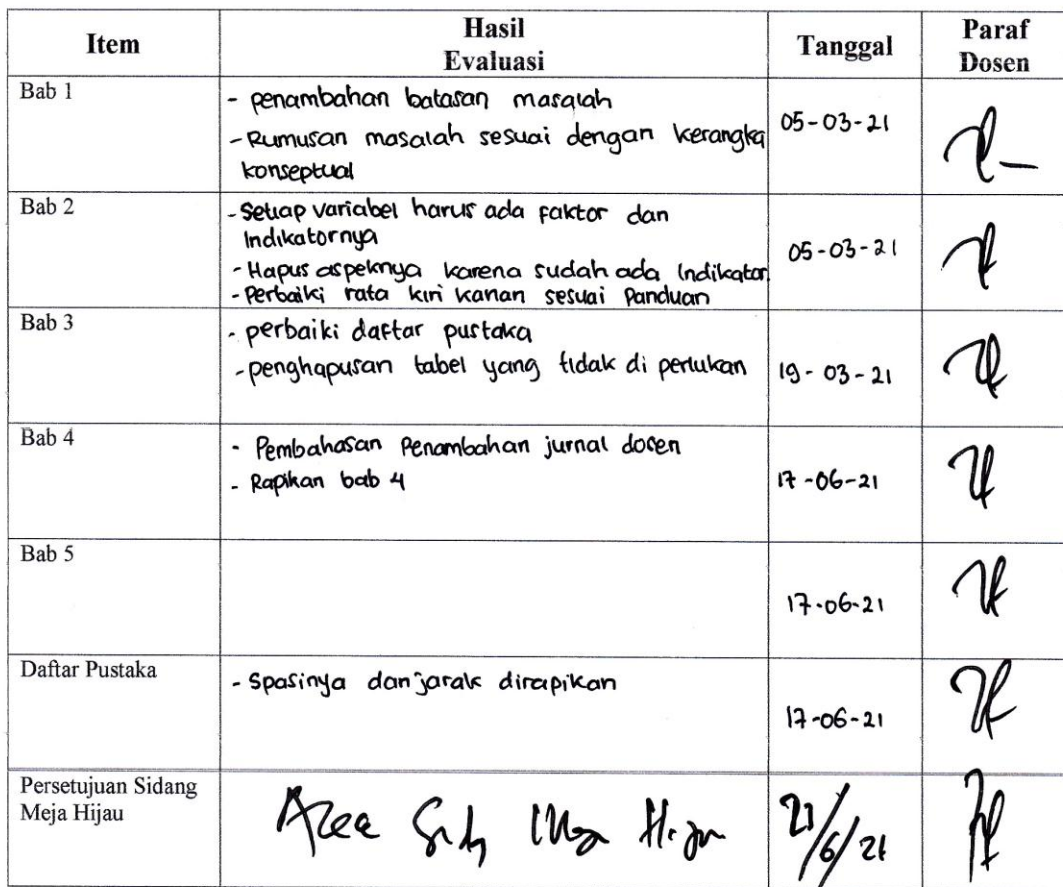 Item
Hasil
Evaluasi
Tanggal
Paraf
Dosen
Bab 1
- penambahan batasan masalah
- Rumusan masalah sesuai dengan kerangka
konseptual
05-03-21
Bab 2
- Setiap variabel harus ada faktor dan
Indikatornya
- Hapus aspeknya karena sudah ada Indikator
- Perbaiki rata kiri kanan sesuai Panduan
05-03-21
Bab 3
- perbaiki daftar pustaka
- penghapusan tabel yang tidak di perlukan
19-03-21
Bab 4
- Pembahasan Penambahan jurnal dosen
- Rapikan bab 4
17-06-21
Bab 5
17-06-21
Daftar Pustaka
- Spasinya dan jarak dirapikan
17-06-21
Persetujuan Sidang
Meja Hijau
Hijau
/6/21